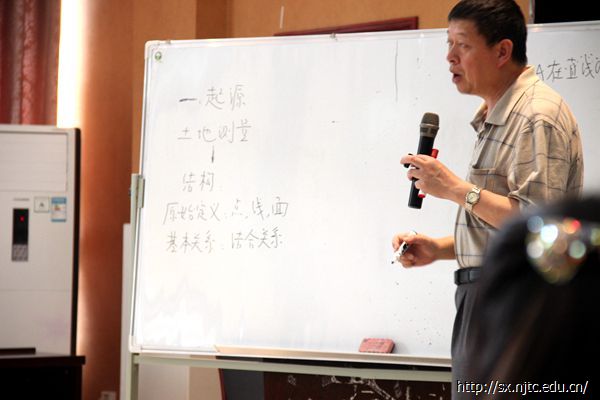 一、起源
土地测量
结构
原始定义:点,线,面
基本关系:结合关系
A在直线
http://sx.njtc.edu.cn/